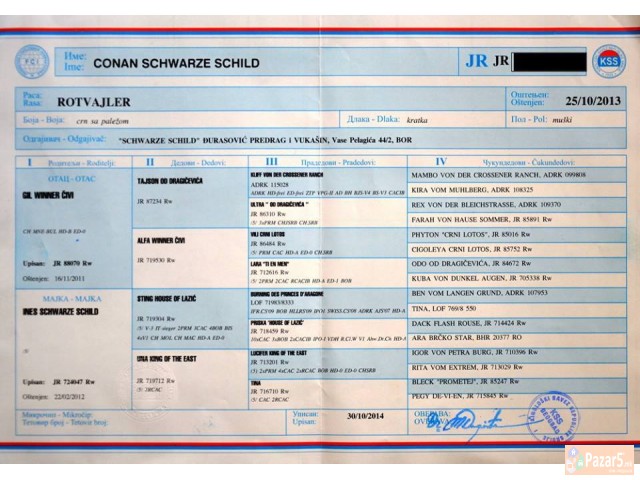 Име:
Ime: CONAN SCHWARZE SCHILD
JR JR
FCI
KSS
Раса:
Rasa: ROTVAJLER
Оштењен:
Oštenjen: 25/10/2013
Боја - Boja: crn sa paležom
Длака - Dlaka: kratka
Пол - Pol: muški
Одгајивач - Odgajivač: "SCHWARZE SCHILD" ĐURASOVIĆ PREDRAG I VUKAŠIN, Vase Pelagića 44/2, BOR
I Родитељи - Roditelji:
II Дедови - Dedovi:
III Прадедови - Pradedovi:
IV Чукундедови - Čukundedovi:
ОТАЦ - OTAC
GIL WINNER ČIVI
CH MNE BUL HD-B ED-0
Upisan: JR 88070 Rw
Oštenjen: 16/11/2011
МАЈКА - MAJKA
INES SCHWARZE SCHILD
Upisan: JR 724047 Rw
Oštenjen: 22/02/2012
TAJSON OD DRAGIČEVIĆA
JR 87234 Rw
ALFA WINNER ČIVI
JR 719530 Rw
STING HOUSE OF LAZIĆ
JR 719304 Rw
UNA KING OF THE EAST
JR 719712 Rw
/5/ 2RCAC
KLIFF VON DER CROSSENER RANCH
ADRK 115028
ULTRA " OD DRAGIČEVIĆA "
JR 86310 Rw
VILI CRNI LOTOS
JR 86484 Rw
/5/ PRM CAC HD-A ED-0 CHSRB
LARA "TI EN MEN"
JR 712616 Rw
/5/ 2PRM 2CAC RCACIB HD-A ED-1 BOB
BURNING DES PRINCES D'ARAGONE
LOF 71983/8333
PRINKA 'HOUSE OF LAZIĆ'
JR 718459 Rw
LUCIFER KING OF THE EAST
JR 713201 Rw
TINA
JR 716710 Rw
/5/ CAC 2RCAC
MAMBO VON DER CROSSENER RANCH, ADRK 099808
KIRA VOM MUHLBERG, ADRK 108325
REX VON DER BLEICHSTRASSE, ADRK 109370
FARAH VON HAUSE SOMMER, JR 85891 Rw
PHYTON "CRNI LOTOS", JR 85016 Rw
CIGOLEYA CRNI LOTOS, JR 85752 Rw
ODO OD DRAGIČEVIĆA, JR 84672 Rw
KUBA VON DUNKEL AUGEN, JR 705338 Rw
BEN VOM LANGEN GRUND, ADRK 107953
TINA, LOF 769/8 550
DACK FLASH HOUSE, JR 714424 Rw
ARA BRČKO STAR, BHR 20377 RO
IGOR VON PETRA BURG, JR 710396 Rw
RITA VOM EXTREM, JR 713029 Rw
BLECK "PROMETEJ", JR 85247 Rw
PEGY DE-VI-EN, JR 715845 Rw
Микрочип - Mikročip:
Тетовир број - Tetovir broj:
Уписан:
Upisan: 30/10/2014
Pazar5